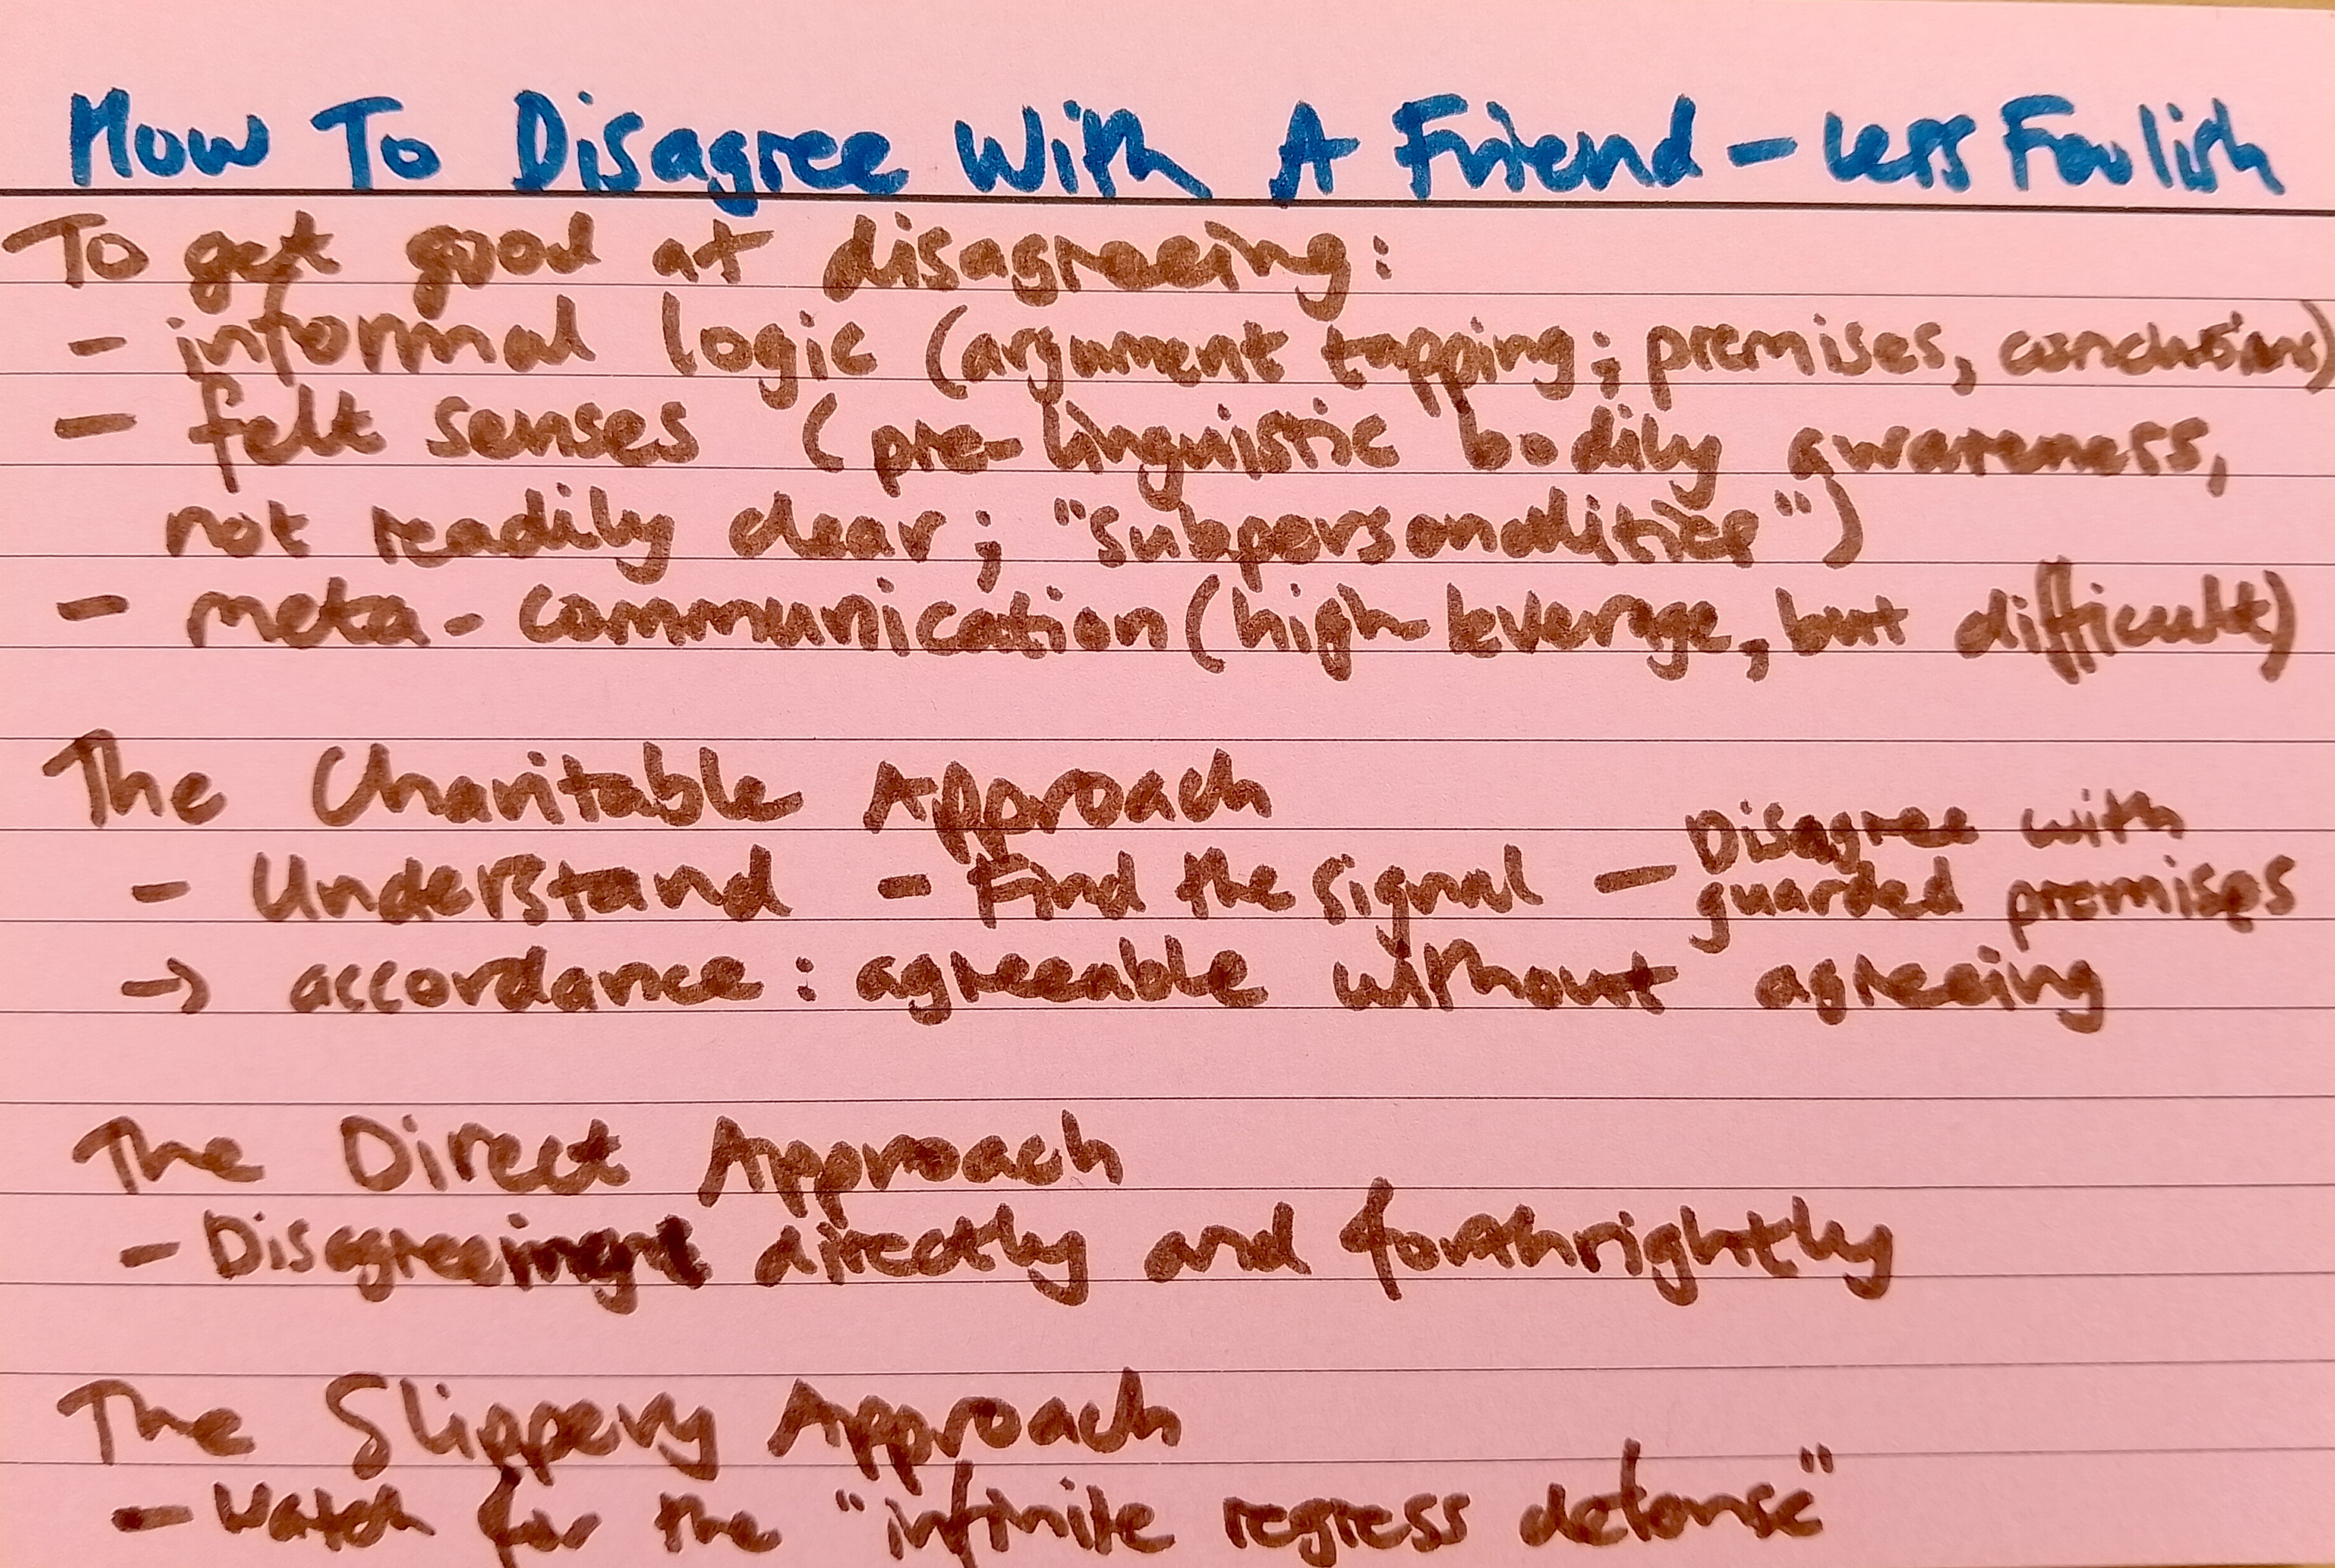 How To Disagree With A Friend - Less Foolish
To get good at disagreeing:
- informal logic (argument tapping; premises, conclusions)
- felt senses (pre-linguistic bodily awareness,
not readily clear; "subpersonalities")
- meta-communication (high-leverage, but difficult)
The Charitable Approach
- Understand - Find the signal - Disagree with guarded premises
→ accordance: agreeable without agreeing
The Direct Approach
- directly and forthrightly
The Slippery Approach
- Watch for the "infinite regress defense"